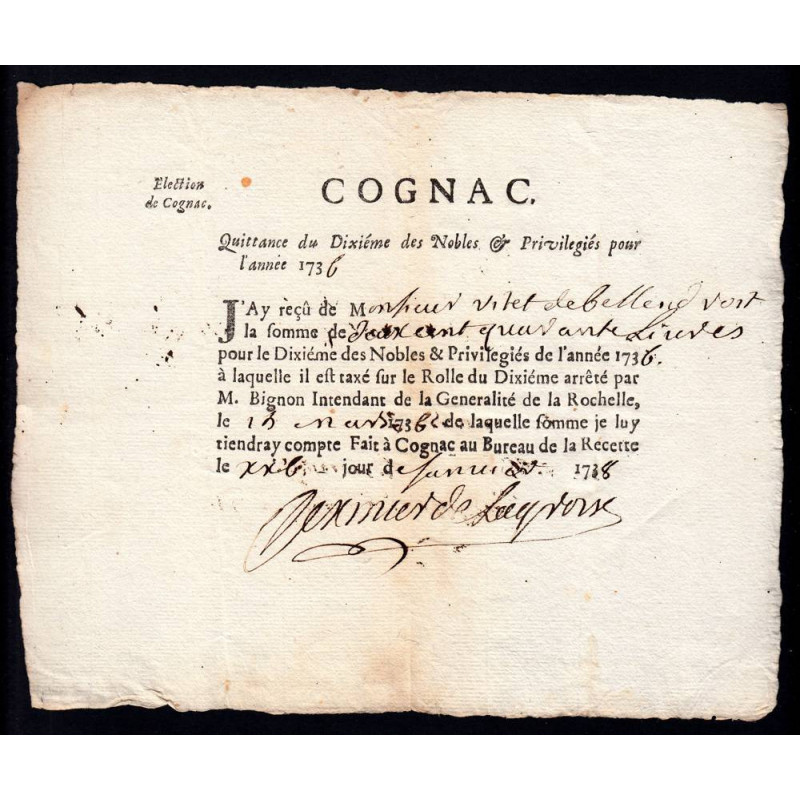 Election
de Cognac.
COGNAC.
Quittance du Dixiéme des Nobles & Privilegiés pour
l'année 1736
J'Ay reçû de Monsieur
la somme de deux cent quarante Liures
pour le Dixiéme des Nobles & Privilegiés de l'année 1736.
à laquelle il est taxé sur le Rolle du Dixiéme arrêté par
M. Bignon Intendant de la Generalité de la Rochelle,
le mars 1736 de laquelle somme je luy
tiendray compte Fait à Cognac au Bureau de la Recette
le xx6e jour de Januier 1738